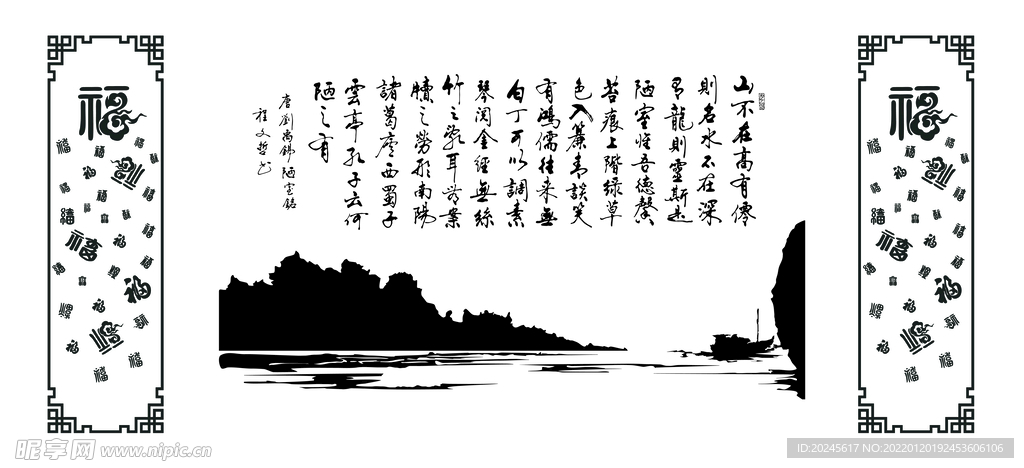 山不在高有僊
則名水不在深
有龍則靈斯是
陋室惟吾德馨
苔痕上階綠草
色入簾青談笑
有鴻儒往來無
白丁可以調素
琴閱金經無絲
竹之亂耳無案
牘之勞形南陽
諸葛廬西蜀子
雲亭孔子云何
陋之有
唐劉禹錫陋室銘
程文哲书
福
福
昵享网 www.nipic.cn
ID:20245617 NO:20220120192453606106